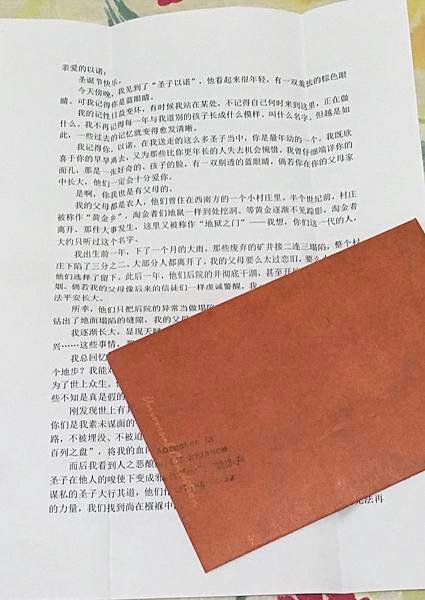 亲爱的以诺：
圣诞节快乐，
今天傍晚，我见到了“圣子以诺”，他看起来很年轻，有一双羞怯的棕色眼
睛。可我记得你是蓝眼睛。
我的记性日益变坏，有时候我站在某处，不记得自己何时来到这里，正在做
什么。我不再记得每一年与我道别的孩子长成什么模样、叫什么名字，但越是如
此，一些过去的记忆就变得愈发清晰。
我记得你，以诺，在我送走的这么多圣子当中，你是最年幼的一个。我既欣
喜于你的早早离去，又为那些比你更年长的人失去机会惋惜。我曾仔细端详你的
面孔，那是一张好奇的、孩子的脸，有一双剔透的蓝眼睛，倘若你在你的父母家
中长大，他们一定会十分爱你。
是啊，你我也是有父母的。
我的父母都是农人，他们曾住在西南方的一个小村庄里。半个世纪前，村庄
被称作“黄金乡”，淘金者们地鼠一样到处挖洞。等黄金逐渐不见踪影，淘金者
离开，那件大事发生，这里又被称作“地狱之门”——我想，你们这一代的人，
大约只听过这个名字。
我出生前一年，下了一个月的大雨，那些废弃的矿井接二连三塌陷，整个村
庄下陷了三分之二。大部分人都离开了，我的父母要么太过恋旧，要么
他们选择了留下。此后一年，他们后院的井彻底干涸，甚至开始
烟。倘若我的父母像后来的信徒们一样虔诚警醒，我
法平安长大。
所幸，他们只把后院的异常当做塌陷
钻出了地面塌陷的缝隙，我的父母
我逐渐长大，显现天赋
兴……这些事情，
我总回忆
个地步？我能
为了世上众生。
些不知是真是假的
刚发现世上有
你们是我素未谋面的
路，不被埋没、不被迫
百列之盘”，将我的血
而后我看到人之恶
圣子在他人的唆使下变成
谋私的圣子大行其道，他们
的力量，我们找到尚在襁褓中
法再